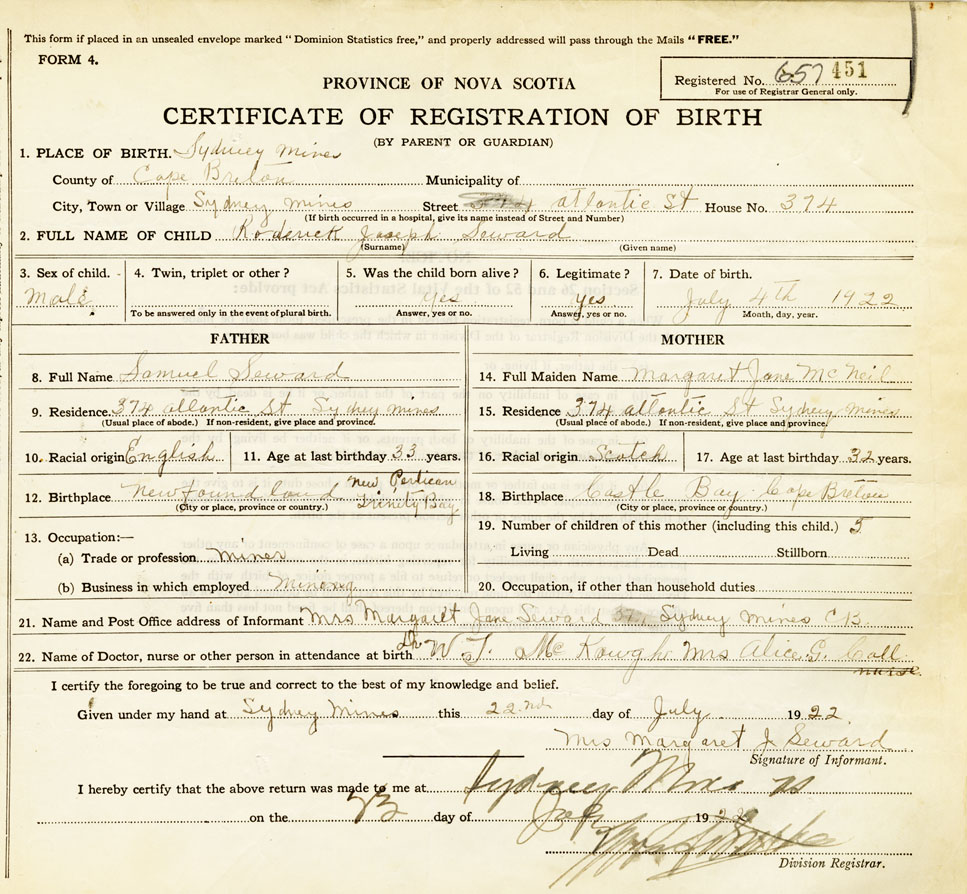 This form if placed in an unsealed envelope marked "Dominion Statistics free," and properly addressed will pass through the Mails "FREE."
FORM 4.
Registered No. 657 451
For use of Registrar General only.
PROVINCE OF NOVA SCOTIA
CERTIFICATE OF REGISTRATION OF BIRTH
(BY PARENT OR GUARDIAN)
1. PLACE OF BIRTH. Sydney Mines
County of Cape Breton Municipality of
City, Town or Village Sydney Mines Street atlantic St House No. 374
(If birth occurred in a hospital, give its name instead of Street and Number)
2. FULL NAME OF CHILD Roderick Joseph Seward
(Surname) (Given name)
3. Sex of child. 4. Twin, triplet or other? 5. Was the child born alive? 6. Legitimate? 7. Date of birth.
Male yes yes July 4th 1922
To be answered only in the event of plural birth. Answer, yes or no. Answer, yes or no. Month, day, year.
FATHER MOTHER
8. Full Name Samuel Seward 14. Full Maiden Name Margaret Jane McNeil
9. Residence. 374 atlantic St Sydney mines 15. Residence 374 atlantic St Sydney mines
(Usual place of abode.) If non-resident, give place and province. (Usual place of abode.) If non-resident, give place and province.
10. Racial origin English 11. Age at last birthday 33 years. 16. Racial origin Scotch 17. Age at last birthday 32 years.
12. Birthplace Newfoundland New Perlican Trinity Bay 18. Birthplace Castle Bay Cape Breton
(City or place, province or country.) (City or place, province or country.)
19. Number of children of this mother (including this child.) 5
13. Occupation:—
Living Dead Stillborn
(a) Trade or profession miner
(b) Business in which employed Mining 20. Occupation, if other than household duties
21. Name and Post Office address of Informant Mrs Margaret Jane Seward Sydney Mines C B.
22. Name of Doctor, nurse or other person in attendance at birth dr W J. McKough Mrs Alice G. Call
nurse.
I certify the foregoing to be true and correct to the best of my knowledge and belief.
Given under my hand at Sydney Mines this 22nd day of July 1922
Mrs Margaret J Seward
Signature of Informant.
I hereby certify that the above return was made to me at Sydney Mines
on the day of 19
Division Registrar.